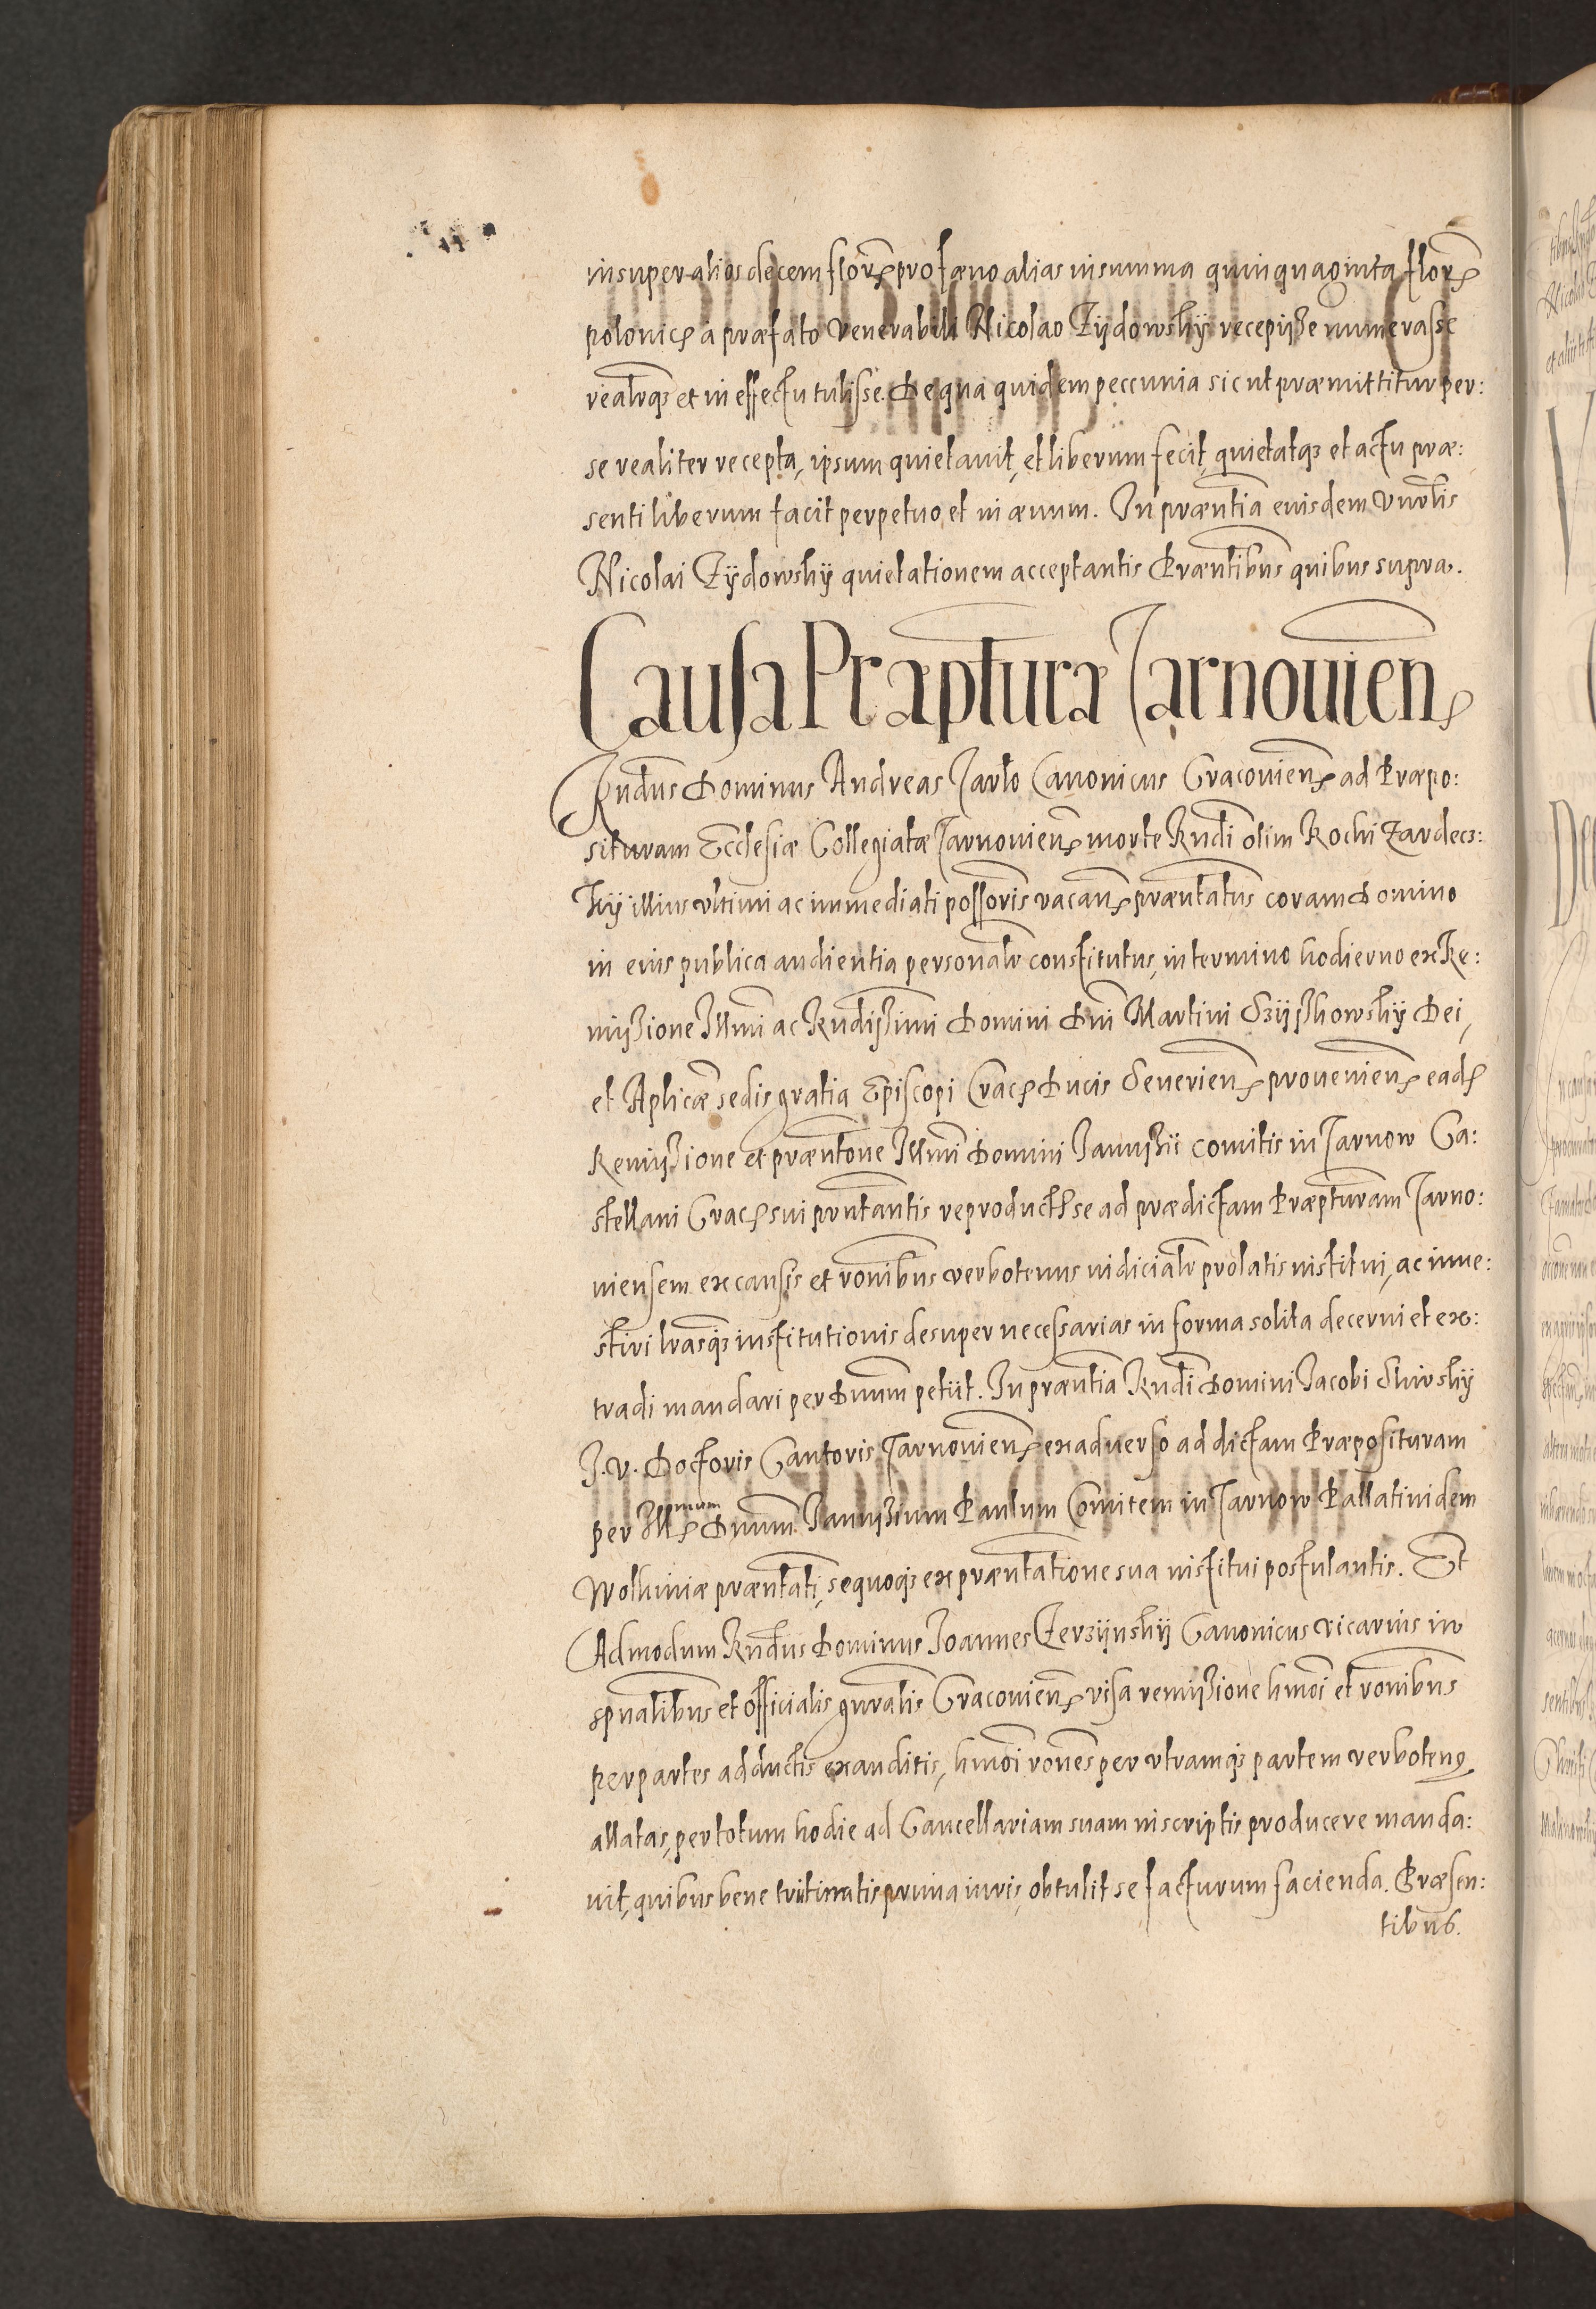 insuper alios decem floren pro fæno alias in summa quinquaginta floren
polonic a præfato Venerabili Nicolao Zÿdowskÿ recepisse numerasse
realrqz et in effectu tulisse. De qua quidem peccunia sic ut præmittitur per:
se realiter recepta, ipsum quietauit, et liberum fecit, quietatqz et actu præ:
senti liberum facit perpetuo et in æuum. In præntia eiusdem Vnrlis
Nicolai Zÿdowskÿ quietationem acceptantis Præntibus quibus supra.
Causa Præpturæ Tarnouien
Rndus Dominus Andreas Tarlo Canonicus Cracouien ad Præpo:
situram Ecclesiæ Collegiatæ Tarnouien morte Rndi olim Rochi Zardecz:
kÿ illius vltimi ac immediati possoris vacan præntatus coram Domino
in eius publica audientia personalr constitutus, in termino hodierno ex Re:
missione Illmi ac Rndissimi Domini Dni Martini Szÿszkowskÿ Dei,
et Aplicæ sedis gratia Episcopi Crac Ducis Seuerien prouenien ead
Remissione et præntone Illmi Domini Janussii comitis in Tarnow Ca:
stellani Crac sui prntantis reproduct se ad prædictam Præpturam Tarno:
uiensem ex causis et ronibus verbotenus iudicialr prolatis institui, ac inue:
stiri lrasqz institutionis desuper necessarias in forma solita decerni et ex:
tradi mandari per Dnum petiit. In præntia Rndi Domini Jacobi Skirskÿ
J. V. Doctoris Cantoris Tarnouien ex aduerso ad dictam Præposituram
per Illmum Dnum Janussium Paulum Comitem in Tarnow Pallatinidem
Wolhiniæ præntati, sequoqz ex præntatione sua institui postulantis. Et
Admodum Rndus Dominus Joannes Zerzÿnskÿ Canonicus Vicarius in
spualibus et officialis gnralis Cracouien visa remissione hmoi et ronibus
per partes adductis exauditis, hmoi rones per vtramqz partem verboten9
allatas, per totum hodie ad Cancellariam suam in scriptis producere manda:
uit, quibus bene trutinatis prima iuris, obtulit se facturum facienda. Præsen:
tibus.